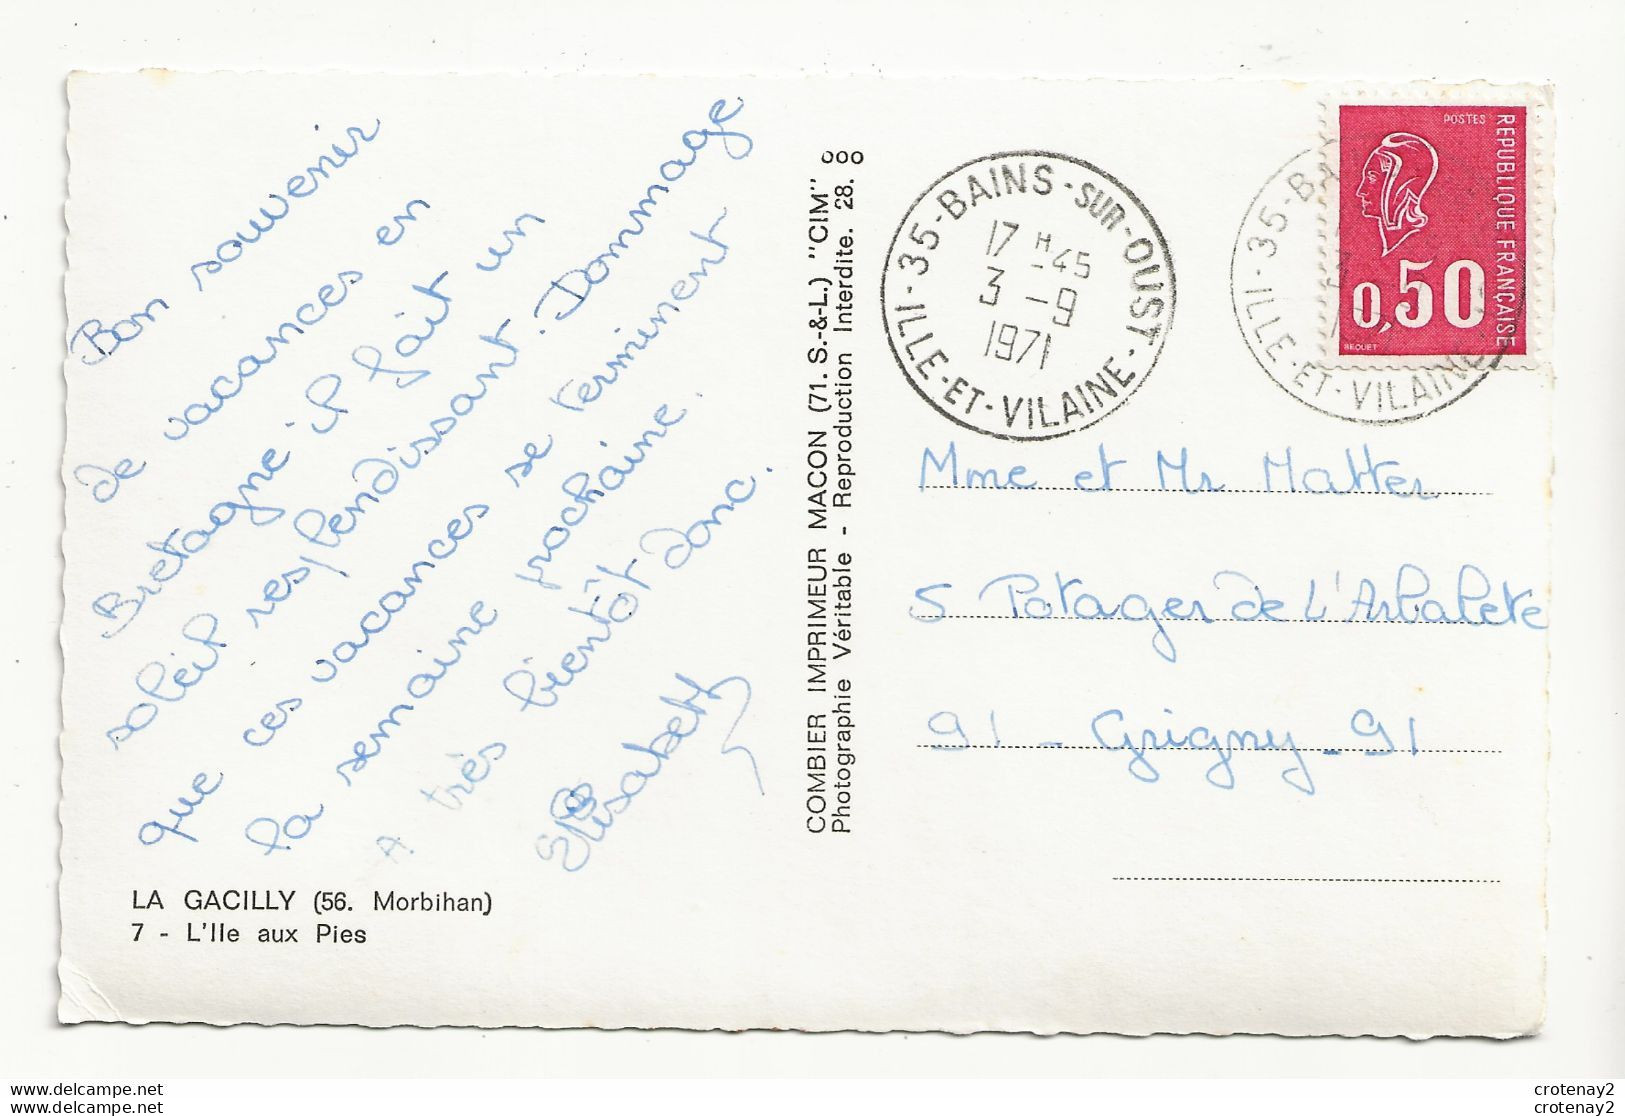 Bon souvenir
de vacances en
Bretagne. il fait un
soleil resplendissant. Dommage
que ces vacances se terminent
la semaine prochaine.
A très bientôt donc.
Elisabeth
LA GACILLY (56. Morbihan)
7 - L'Ile aux Pies
COMBIER IMPRIMEUR MACON (71. S.-&-L.) "CIM"
Photographie Véritable - Reproduction Interdite. 28.
35-BAINS-SUR-OUST
17 H -45
3 -9
1971
ILLE-ET-VILAINE
35-BA
ILLE-ET-VILAINE
POSTES
REPUBLIQUE FRANÇAISE
0,50
BEQUET
Mme et Mr Matter
5 Potager de L'Arbalete
91 - Grigny - 91
www.delcampe.net
www.delcampe.net
crotenay2
crotenay2